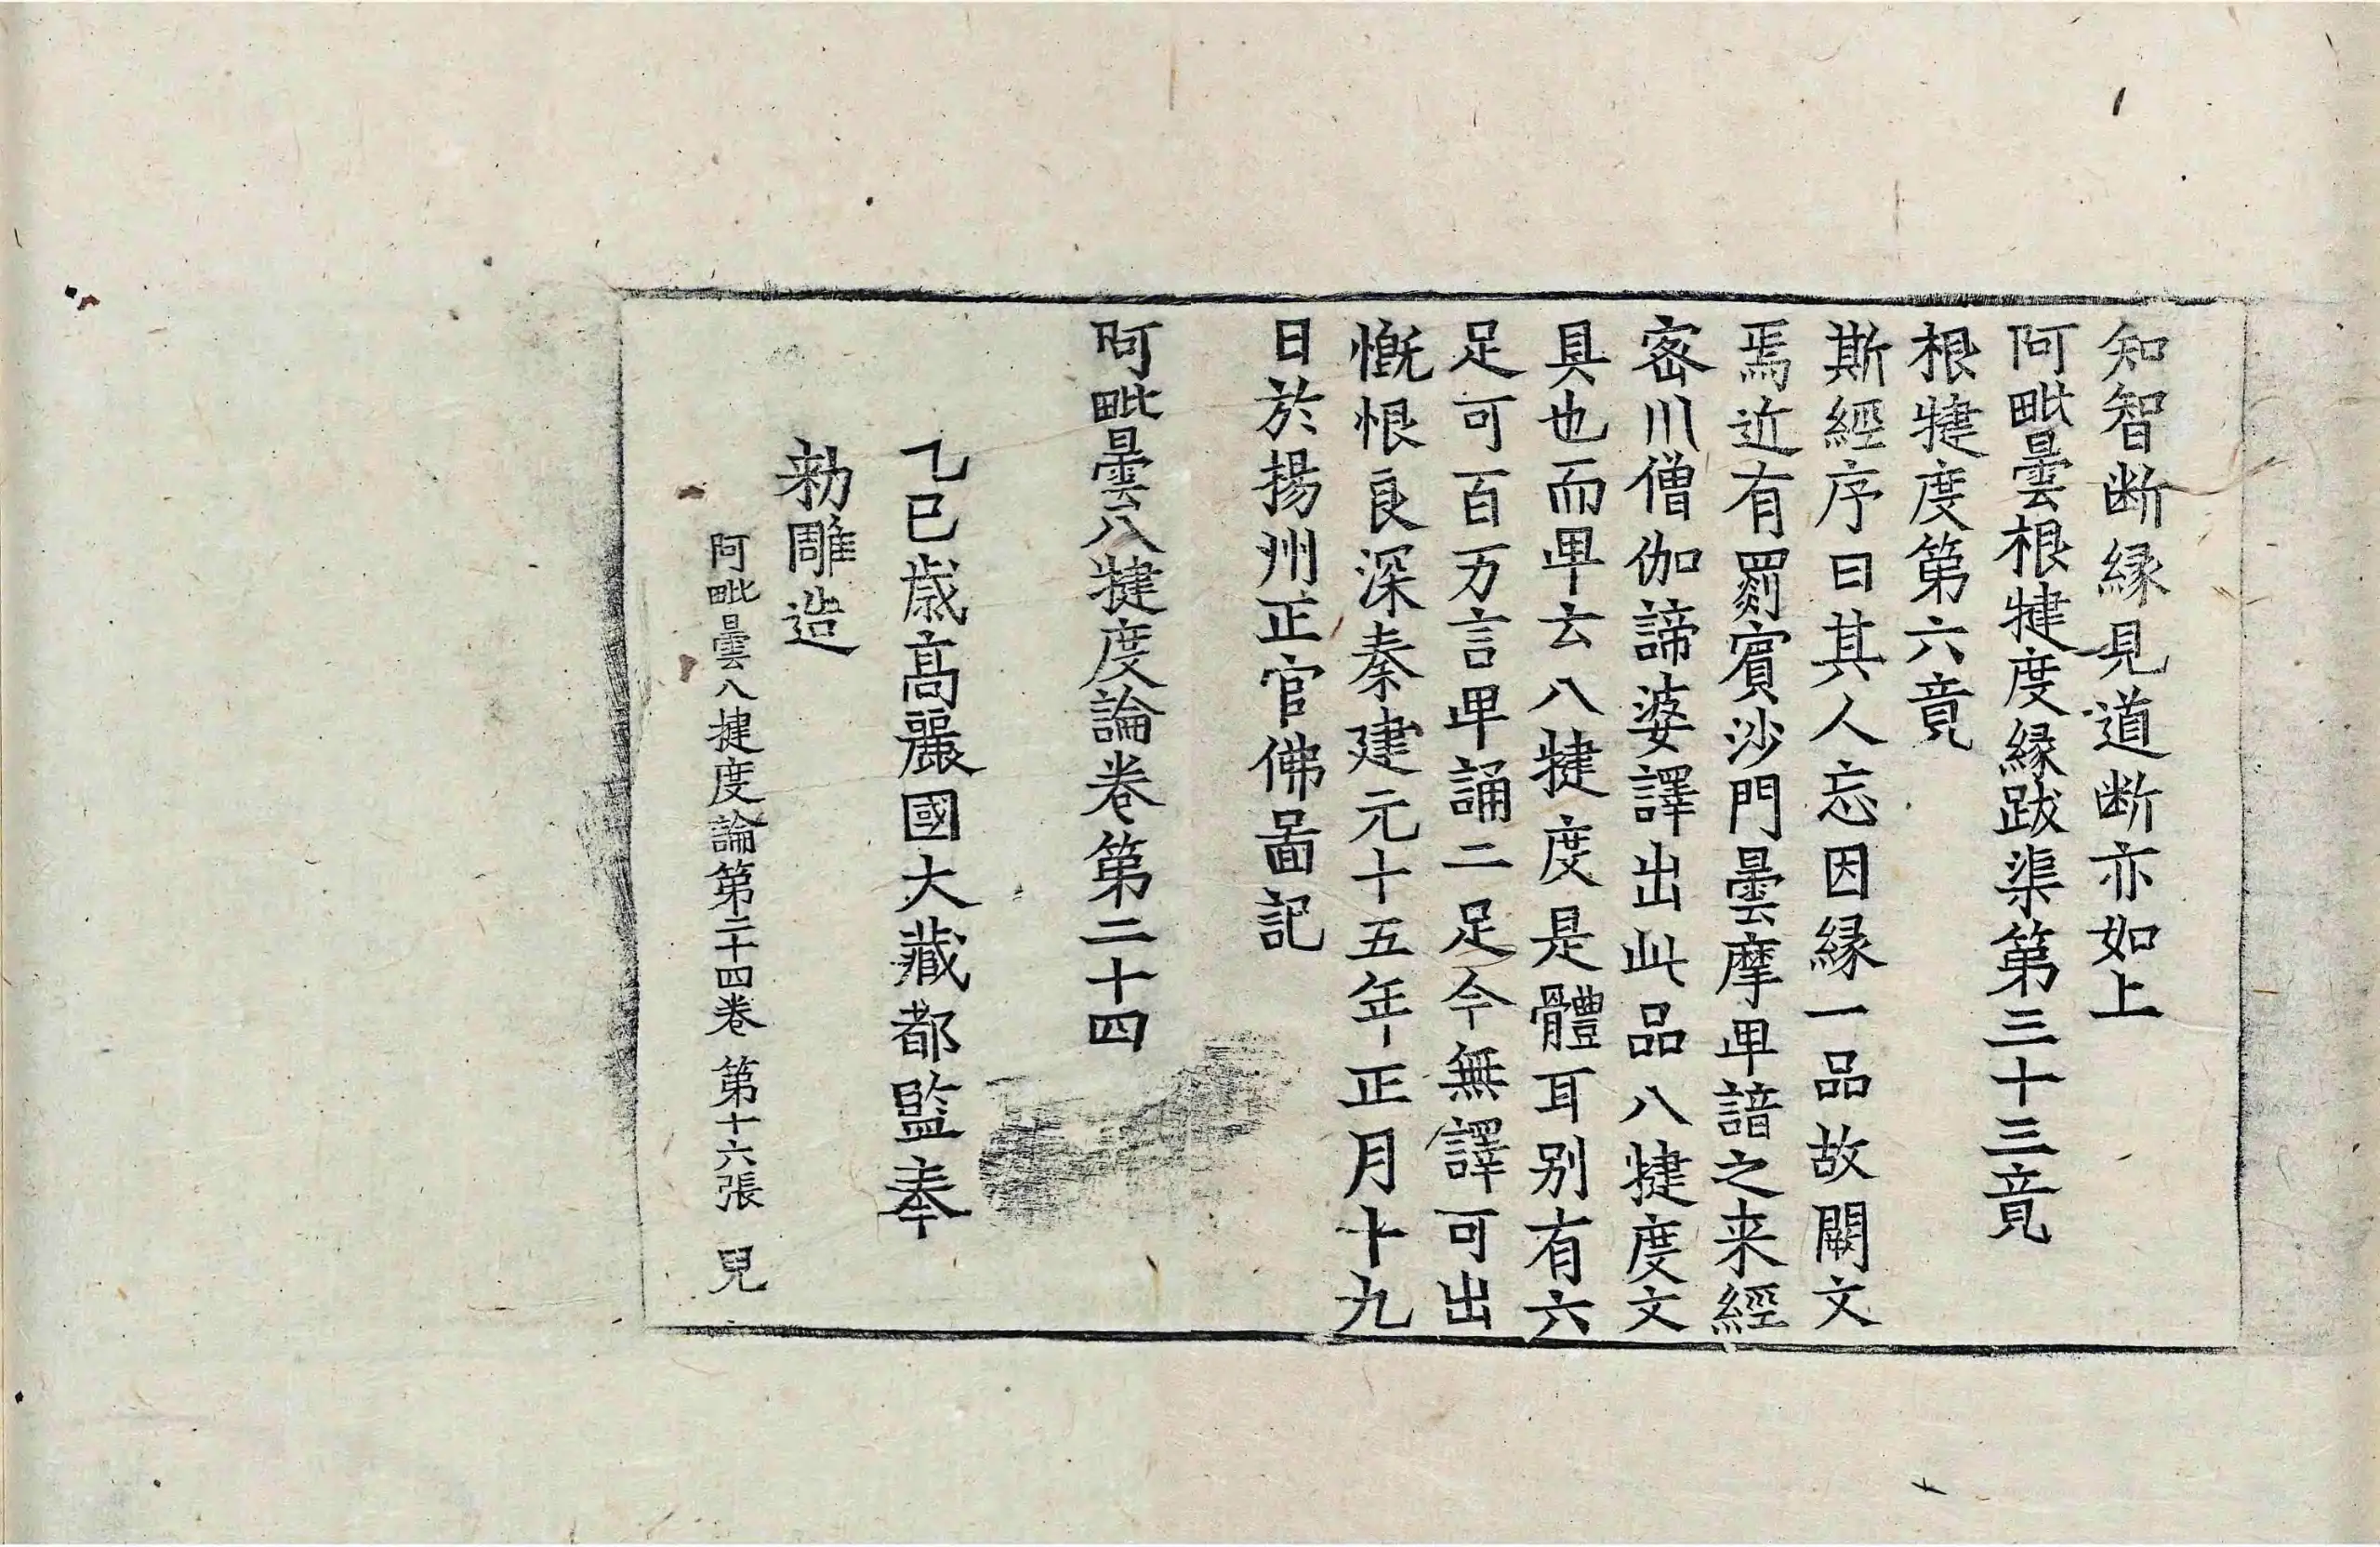 知智断縁見道断亦如上
阿毗曇根揵度縁跋渠第三十三竟
根揵度第六竟
斯經序曰其人忘因縁一品故闕文
焉近有罽賓沙門曇摩卑諳之来經
密川僧伽諦婆譯出此品八揵度文
具也而卑云八揵度是體耳别有六
足可百万言卑誦二足今無譯可出
慨恨良深秦建元十五年正月十九
日於揚州正官佛啚記
阿毗曇八揵度論卷第二十四
乙巳歳高麗國大藏都監奉
勑雕造
阿毗曇八揵度論第二十四卷 第十六張 皃